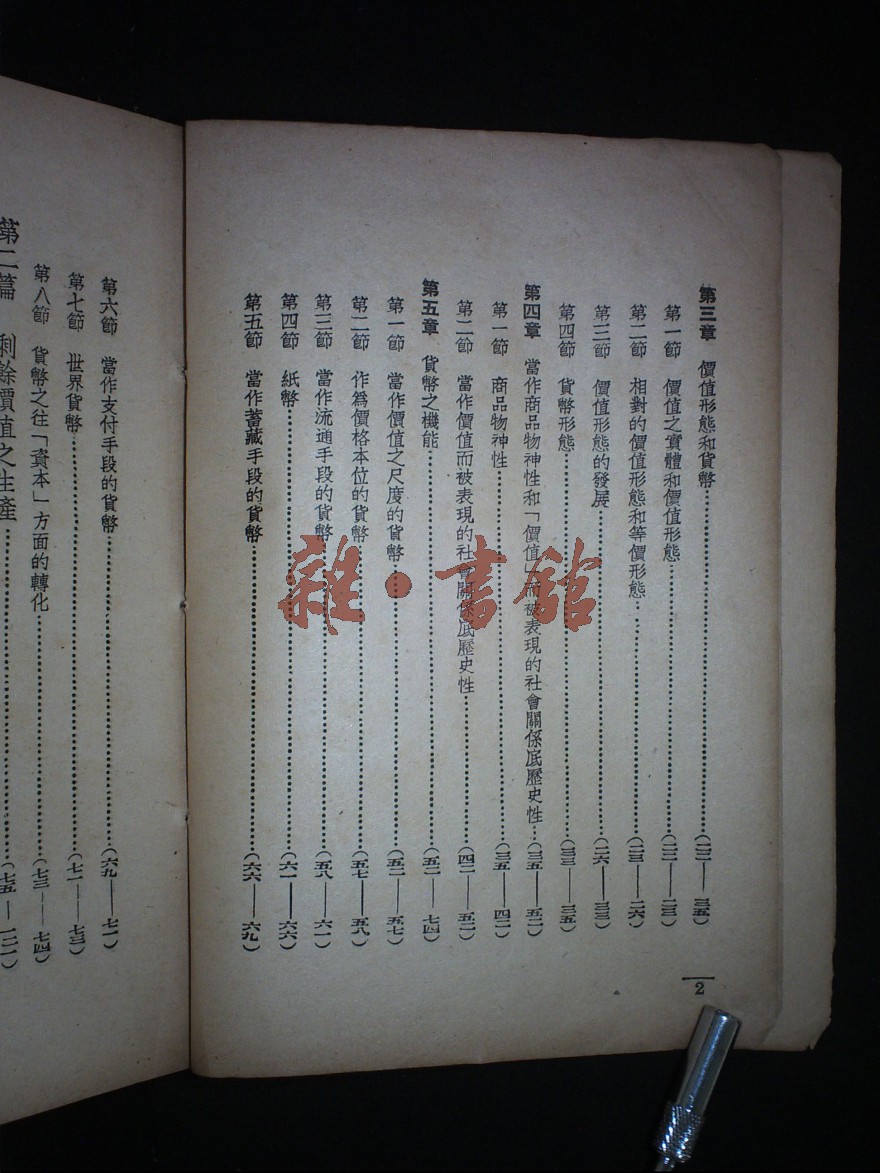 第三章　價值形態和貨幣……(二二——三五)
第一節　價值之實體和價值形態……(二二——二三)
第二節　相對的價值形態和等價形態……(二三——二六)
第三節　價值形態的發展……(二六——三三)
第四節　貨幣形態……(三三——三五)
第四章　當作商品物神性和「價值」而被表現的社會關係底歷史性…(三五——五二)
第一節　商品物神性……(三五——四二)
第二節　當作價值而被表現的社會關係底歷史性……(四二——五二)
第五章　貨幣之機能……(五二——七四)
第一節　當作價值之尺度的貨幣……(五二——五七)
第二節　作為價格本位的貨幣……(五七——五八)
第三節　當作流通手段的貨幣……(五八——六一)
第四節　紙幣……(六一——六六)
第五節　當作蓄藏手段的貨幣……(六六——六九)
2
第六節　當作支付手段的貨幣……(六九——七一)
第七節　世界貨幣……(七一——七三)
第八節　貨幣之往「資本」方面的轉化……(七三——七四)
第二篇　剩餘價值之生產……(七五—一二一)
雜·書館